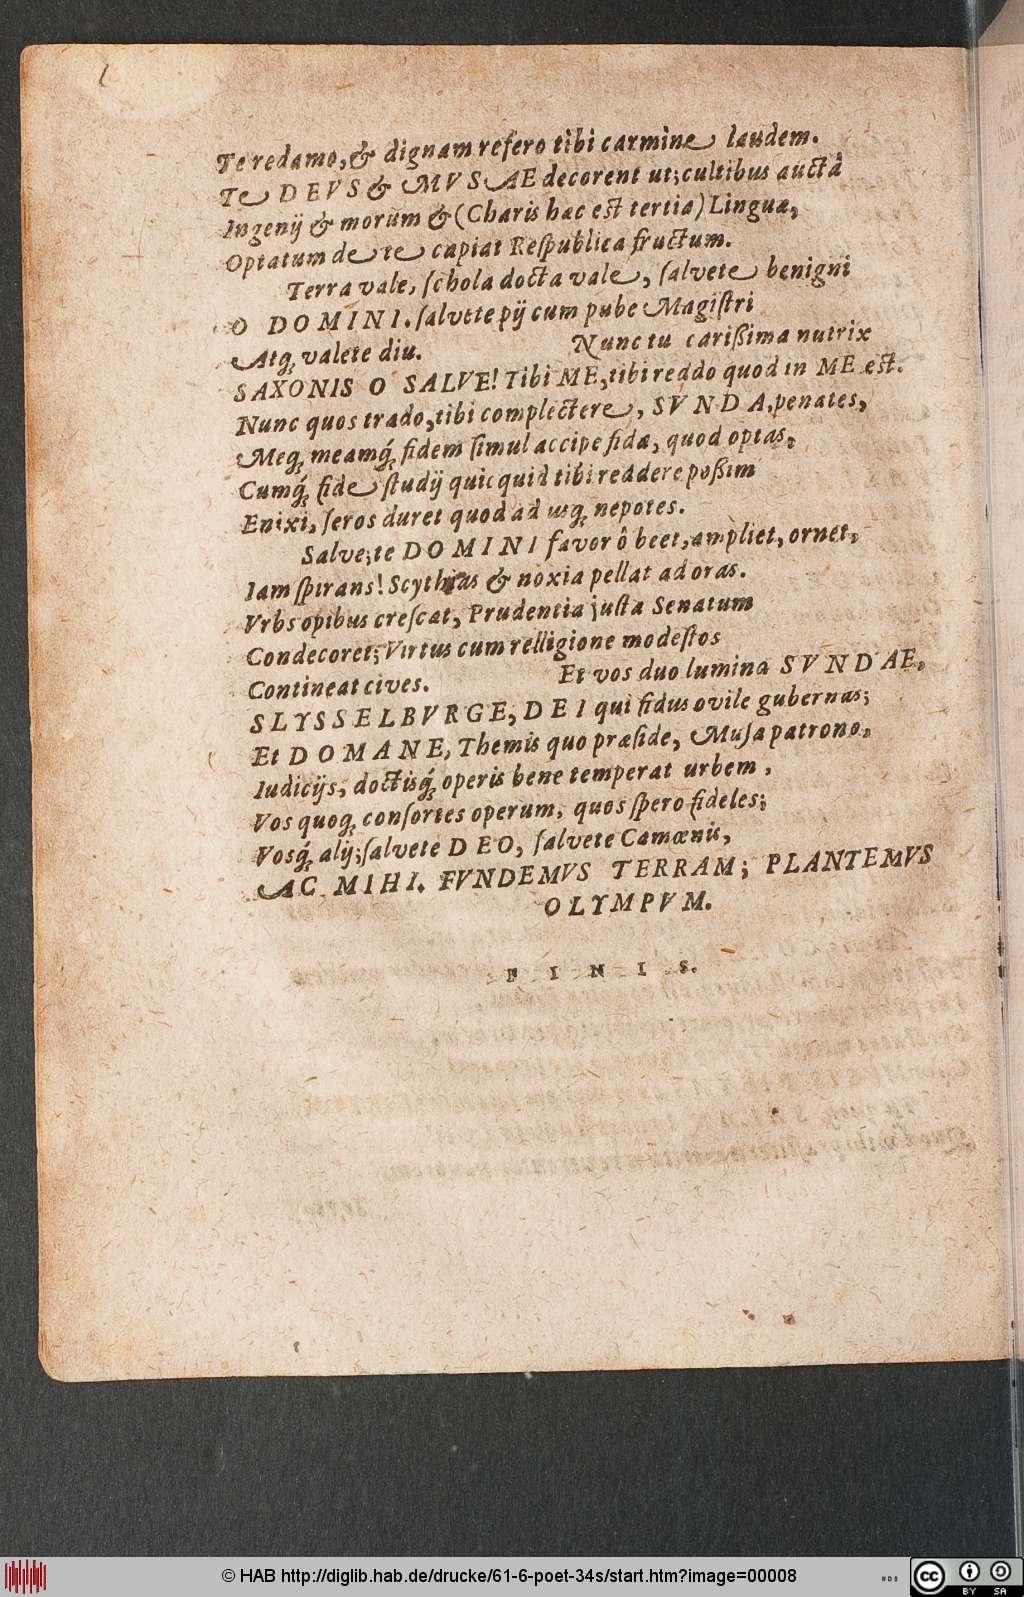 Te redamo, & dignam refero tibi carmine laudem.
Te DEVS & MVSAE decorent ut; cultibus auctâ
Ingenij & morum & (Charis hac est tertia) Linguæ,
Optatum de te capiat Respublica fructum.
Terra vale, schola docta vale, salvete benigni
O DOMINI. salvete pij cum pube Magistri
Atq; valete diu. Nunc tu carißima nutrix
SAXONIS O SALVE! Tibi ME, tibi reddo quod in ME est.
Nunc quos trado, tibi complectere, SVNDA, penates,
Meq; meamq́; fidem simul accipe fidæ, quod optas,
Cumq́; fide studij quicquid tibi reddere poßim
Enixi, seros duret quod ad usq; nepotes.
Salve; te DOMINI favor ô beet, ampliet, ornet,
Iam spirans! Scythias & noxia pellat ad oras.
Vrbs opibus crescat, Prudentia justa Senatum
Condecoret; Virtus cum relligione modestos
Contineat cives. Et vos duo lumina SVNDAE,
SLYSSELBVRGE, DEI qui fidus ovile gubernas;
Et DOMANE, Themis quo præside, Musa patrono,
Iudicijs, doctisq́; operis bene temperat urbem,
Vos quoq; consortes operum, quos spero fideles;
Vosq́; alij; salvete DEO, salvete Camœnis,
AC MIHI. FVNDEMVS TERRAM; PLANTEMVS
OLYMPVM.
FINIS.
© HAB http://diglib.hab.de/drucke/61-6-poet-34s/start.htm?image=00008
cc BY SA